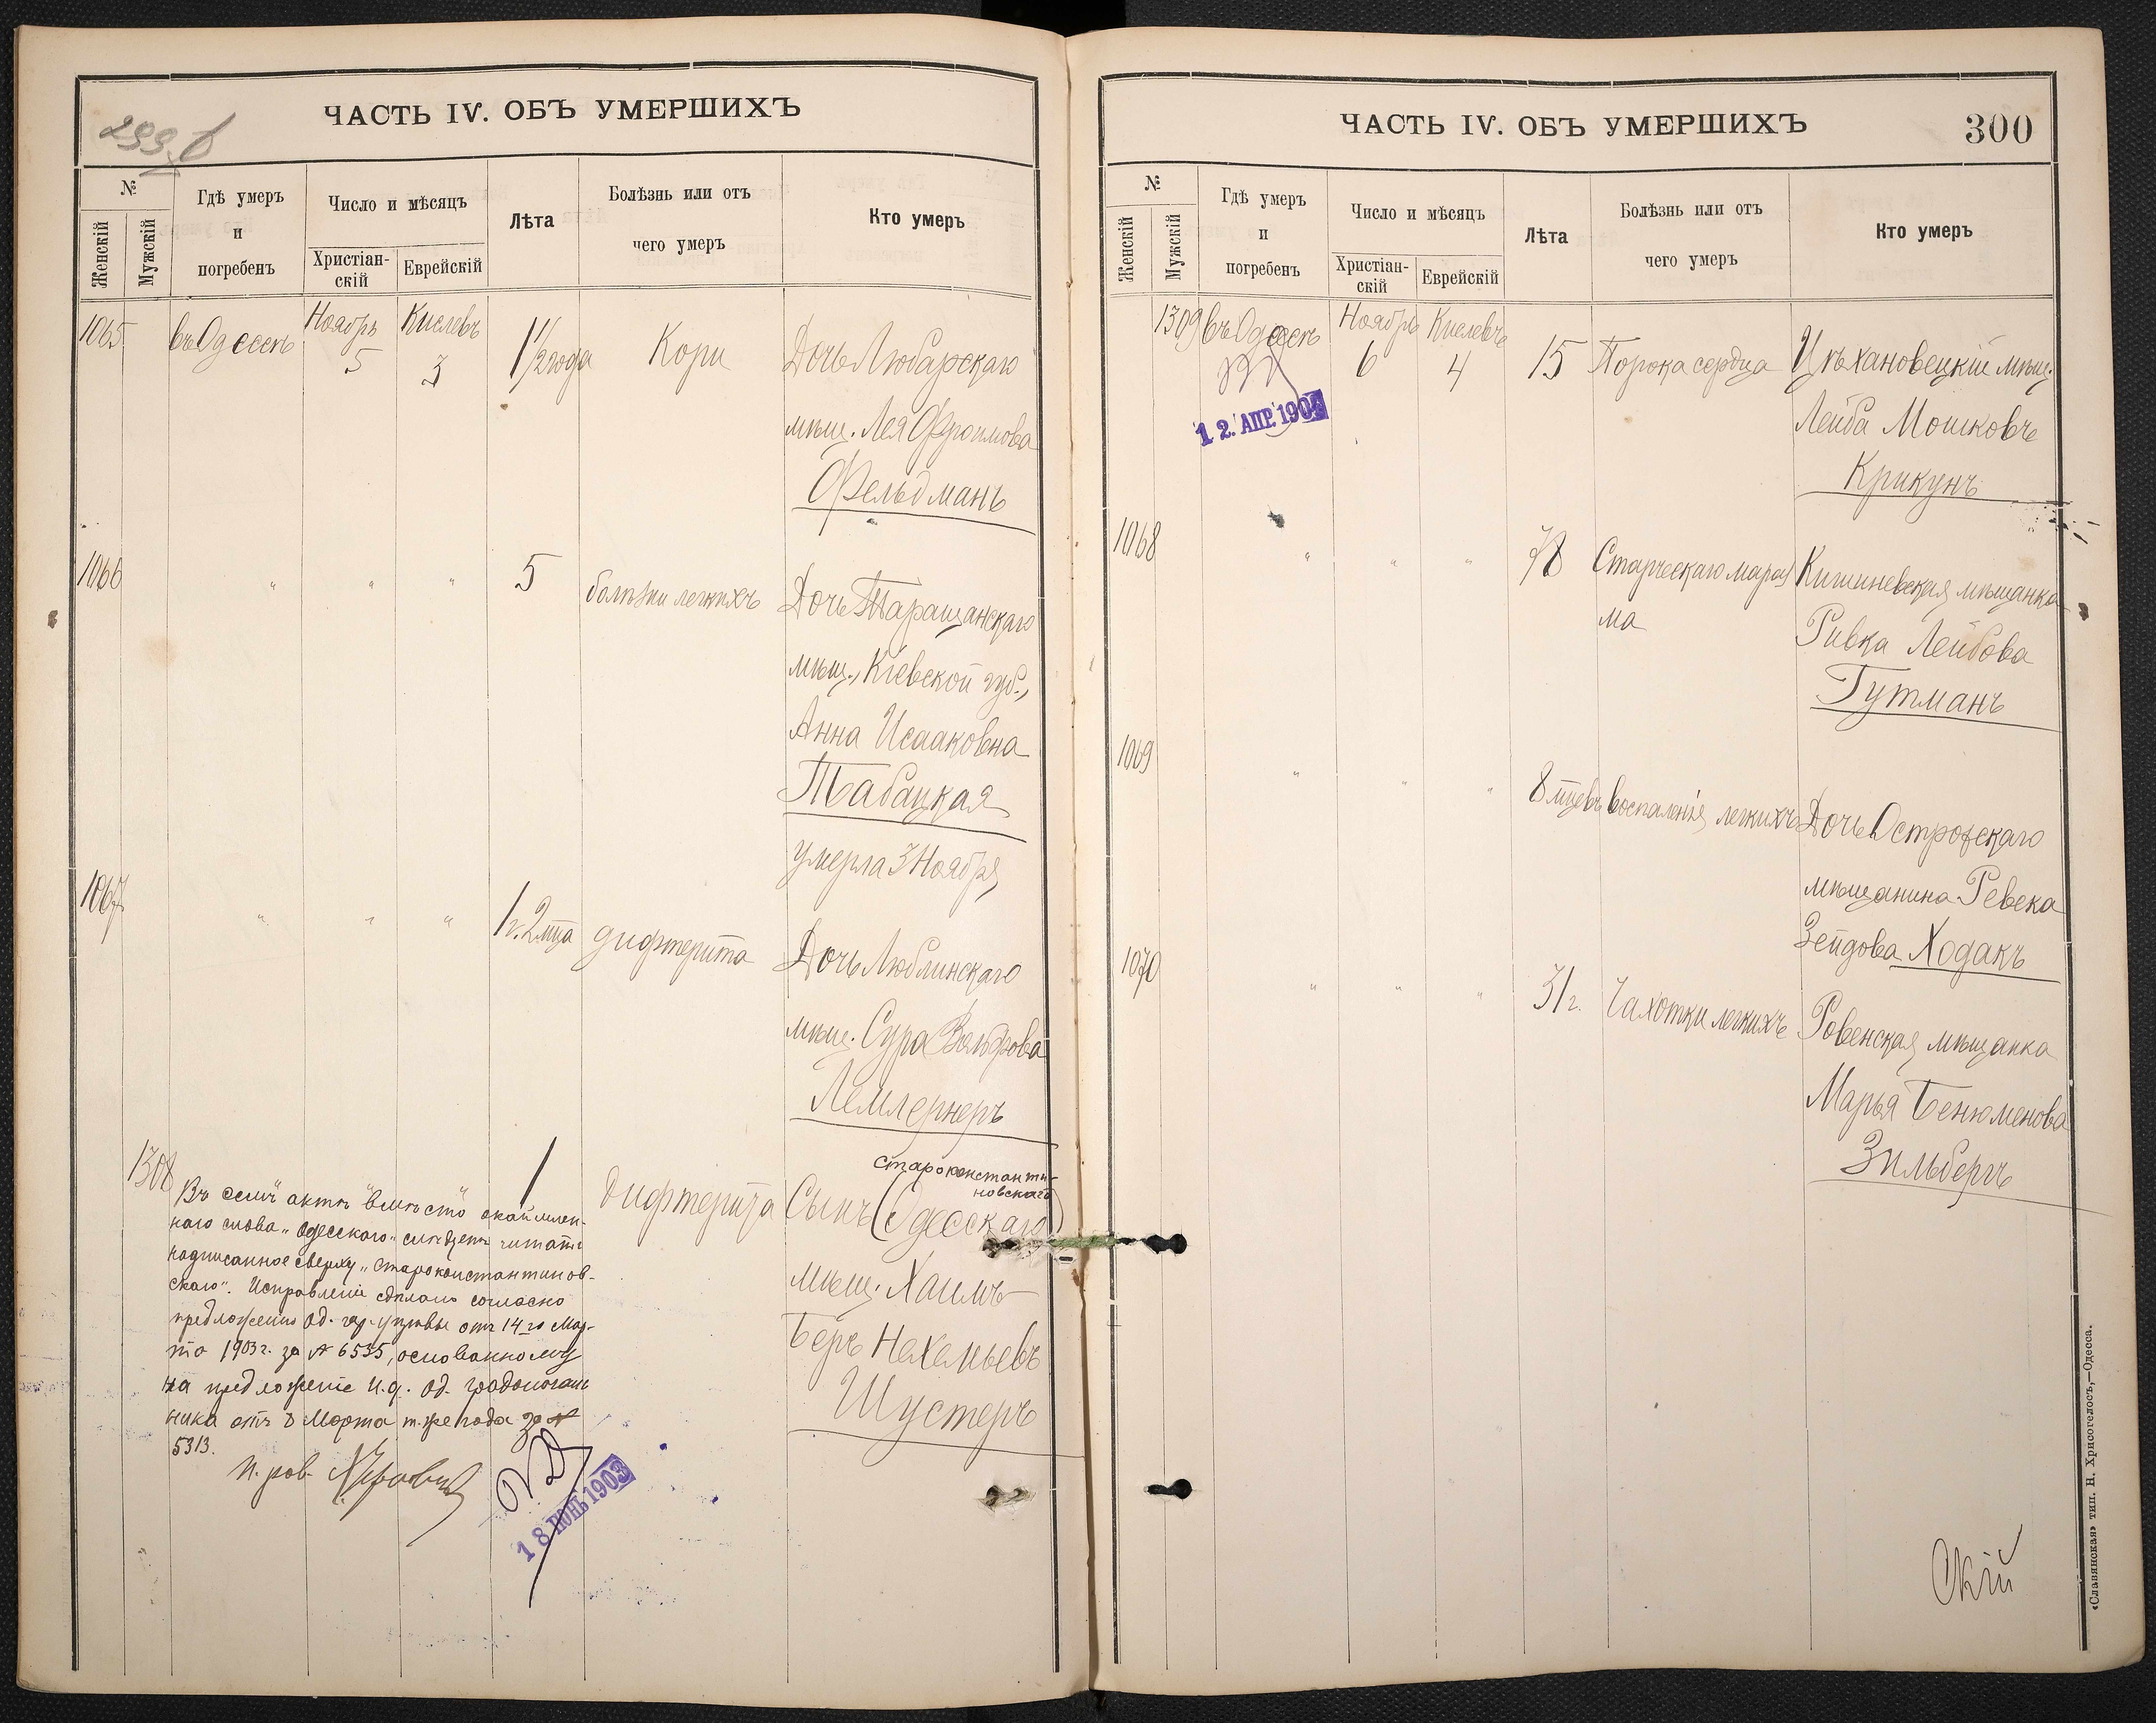 299 б
ЧАСТЬ IV. ОБЪ УМЕРШИХЪ
№
Женскій
Мужскій
Гдѣ умеръ
и
погребенъ
Число и мѣсяцъ
Христіан-
скій
Еврейскій
Лѣта
Болѣзнь или отъ
чего умеръ
Кто умеръ
1065 въ Одессѣ Ноябрь 5 Кислевъ 3 1 1/2 года Кори Дочь Любарскаго
мѣщ. Лея Фроимова
Фельдманъ
1066 " " " 5 болѣзни легкихъ Дочь Таращанскаго
мѣщ., Кіевской губ.,
Анна Исааковна
Табацкая
умерла 3 Ноября
1067 " " " 1 г. 2 мца дифтерита Дочь Люблинскаго
мѣщ. Сура Вольфова
Лемлернеръ
староконстанти-
новскаго
1308 1 Дифтерита Сынъ (Одесскаго)
мѣщ. Хаимъ
Беръ Нахемьевъ
Шустеръ
Въ семъ актѣ вмѣсто окаймлен-
наго слова „Одесскаго" слѣдуетъ читать
надписанное сверху „староконстантинов-
скаго". Исправленіе сдѣлано согласно
предложенію Од. гор. управы отъ 14го Мар-
та 1903 г. за № 6535, основанному
на предложеніе И.д. Од. градоначаль
ника отъ 8 Марта т. же года за №
5313.
И. рав.
18 ІЮНЬ 1903
ЧАСТЬ IV. ОБЪ УМЕРШИХЪ
300
№
Женскій
Мужскій
Гдѣ умеръ
и
погребенъ
Число и мѣсяцъ
Христіан-
скій
Еврейскій
Лѣта
Болѣзнь или отъ
чего умеръ
Кто умеръ
1309 въ Одессѣ Ноябрь 6 Кислевъ 4 15 Порока сердца Цѣхановецкій мѣщ.
Лейба Мошковъ
Крикунъ
12. АПР. 190
1068 " " " 78 Старческаго мараз Кишиневская мѣщанка
ма Ривка Лейбова
Гутманъ
1069 " " " 8 мцевъ воспаленія легкихъ Дочь Острожскаго
мѣщанина Ревека
Зейдова Ходакъ
1070 " " " 31 г. Чахотки легкихъ Ровенская мѣщанка
Марья Бенюменова
Зильбергъ
Скій
«Славянская» тип. Н. Хрисогелосъ,—Одесса.